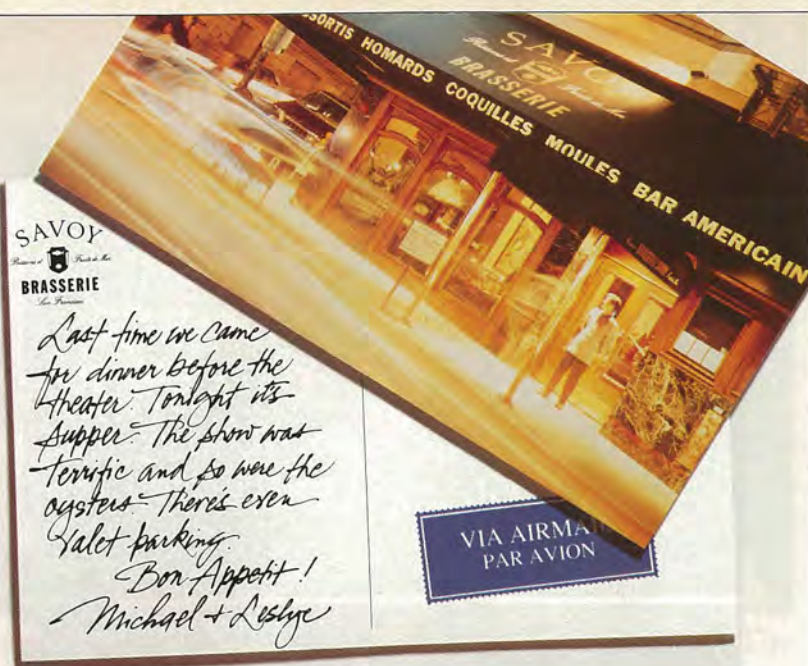 SSORTIS HOMARDS COQUILLES MOULES BAR AMERICAIN
SAVO
BRASSERIE
SAVOY
Poissons et Fruits de Mer
BRASSERIE
San Francisco
Last time we came
for dinner before the
theater. Tonight it's
supper. The show was
terrific and so were the
oysters. There's even
valet parking.
Bon Appetit!
Michael + Leslye
VIA AIRMAI
PAR AVION